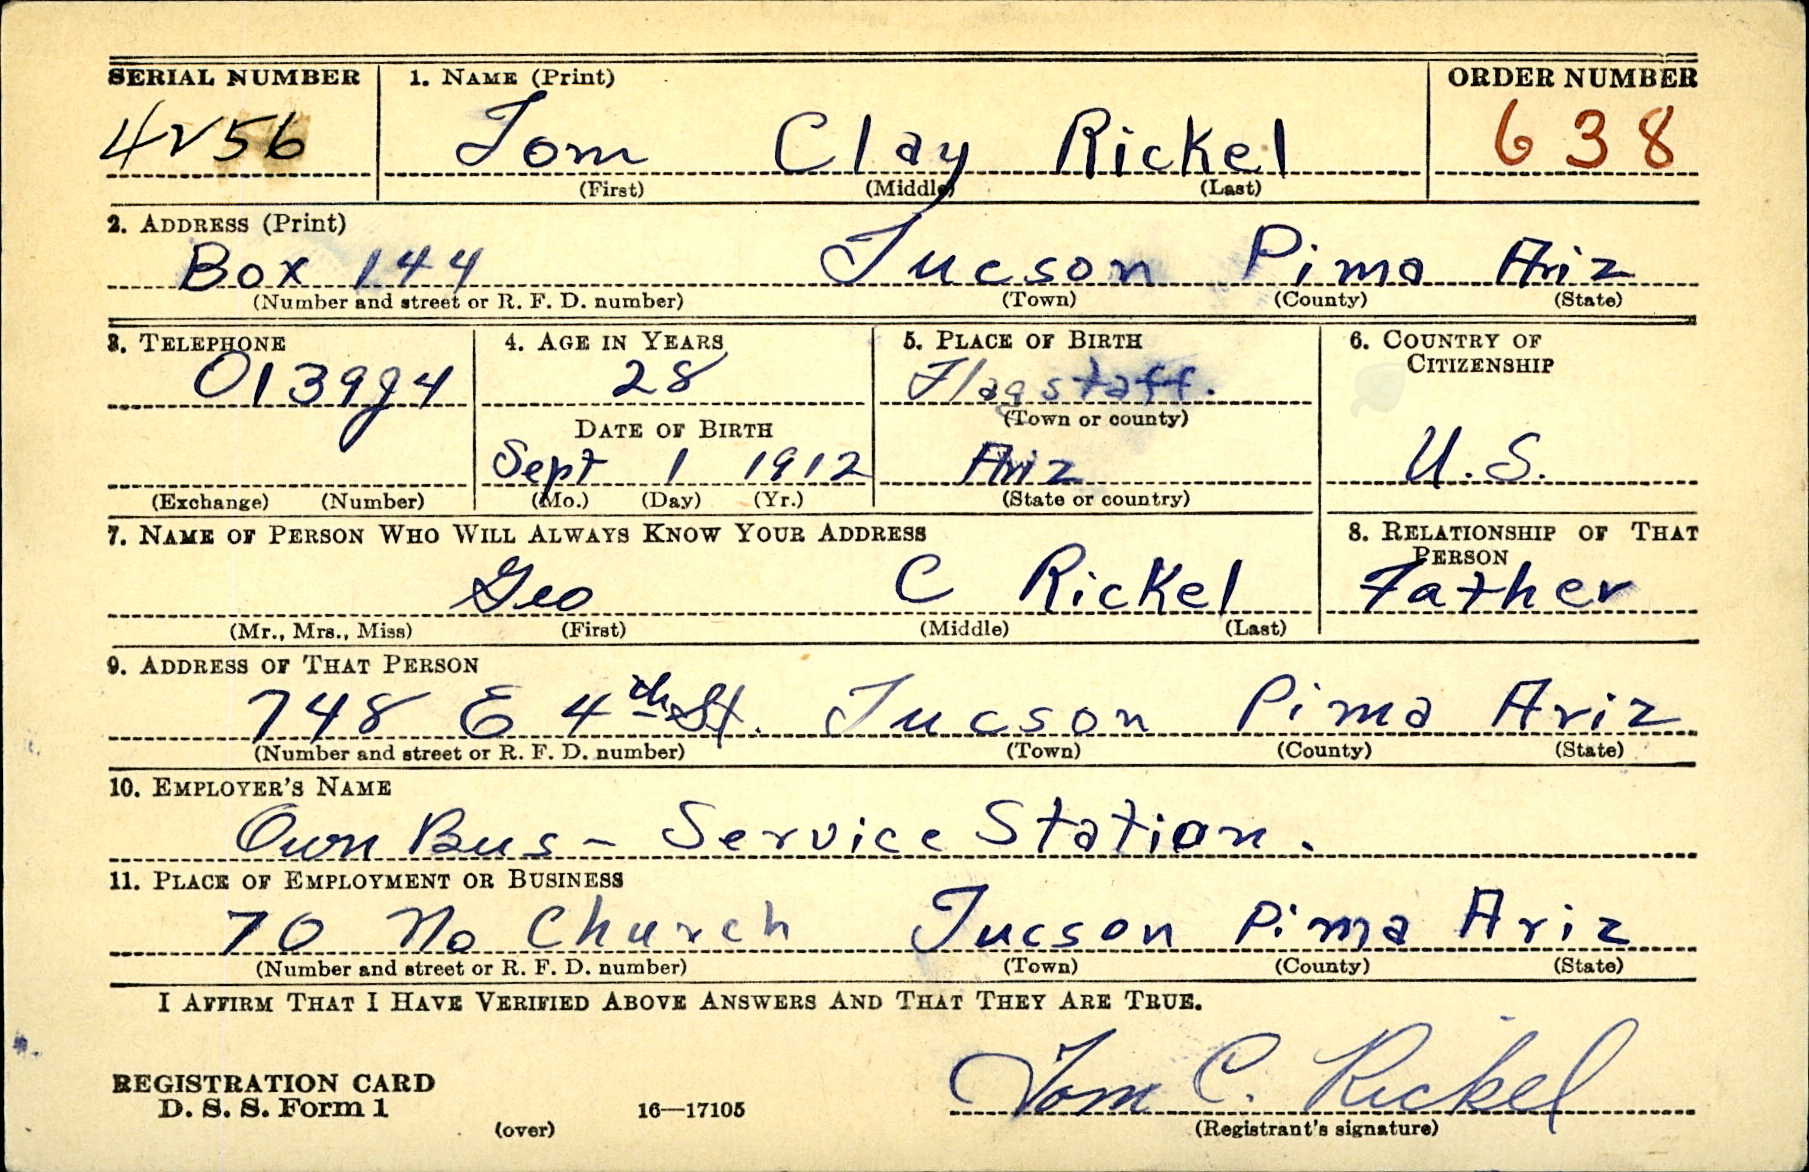 SERIAL NUMBER 1. NAME (Print) ORDER NUMBER
4256 Tom Clay Rickel 638
(First) (Middle) (Last)
2. ADDRESS (Print)
Box 144 Tucson Pima Ariz
(Number and street or R. F. D. number) (Town) (County) (State)
3. TELEPHONE 4. AGE IN YEARS 5. PLACE OF BIRTH 6. COUNTRY OF
CITIZENSHIP
28 Flagstaff.
(Town or county)
DATE OF BIRTH
Sept 1 1912 Ariz U.S.
(Exchange) (Number) (Mo.) (Day) (Yr.) (State or country)
7. NAME OF PERSON WHO WILL ALWAYS KNOW YOUR ADDRESS 8. RELATIONSHIP OF THAT
PERSON
Geo C Rickel Father
(Mr., Mrs., Miss) (First) (Middle) (Last)
9. ADDRESS OF THAT PERSON
748 E 4th St. Tucson Pima Ariz
(Number and street or R. F. D. number) (Town) (County) (State)
10. EMPLOYER'S NAME
Own Bus - Service Station.
11. PLACE OF EMPLOYMENT OR BUSINESS
70 No Church Tucson Pima Ariz
(Number and street or R. F. D. number) (Town) (County) (State)
I AFFIRM THAT I HAVE VERIFIED ABOVE ANSWERS AND THAT THEY ARE TRUE.
Tom C. Rickel
REGISTRATION CARD
D. S. S. Form 1 16—17105
(over) (Registrant's signature)